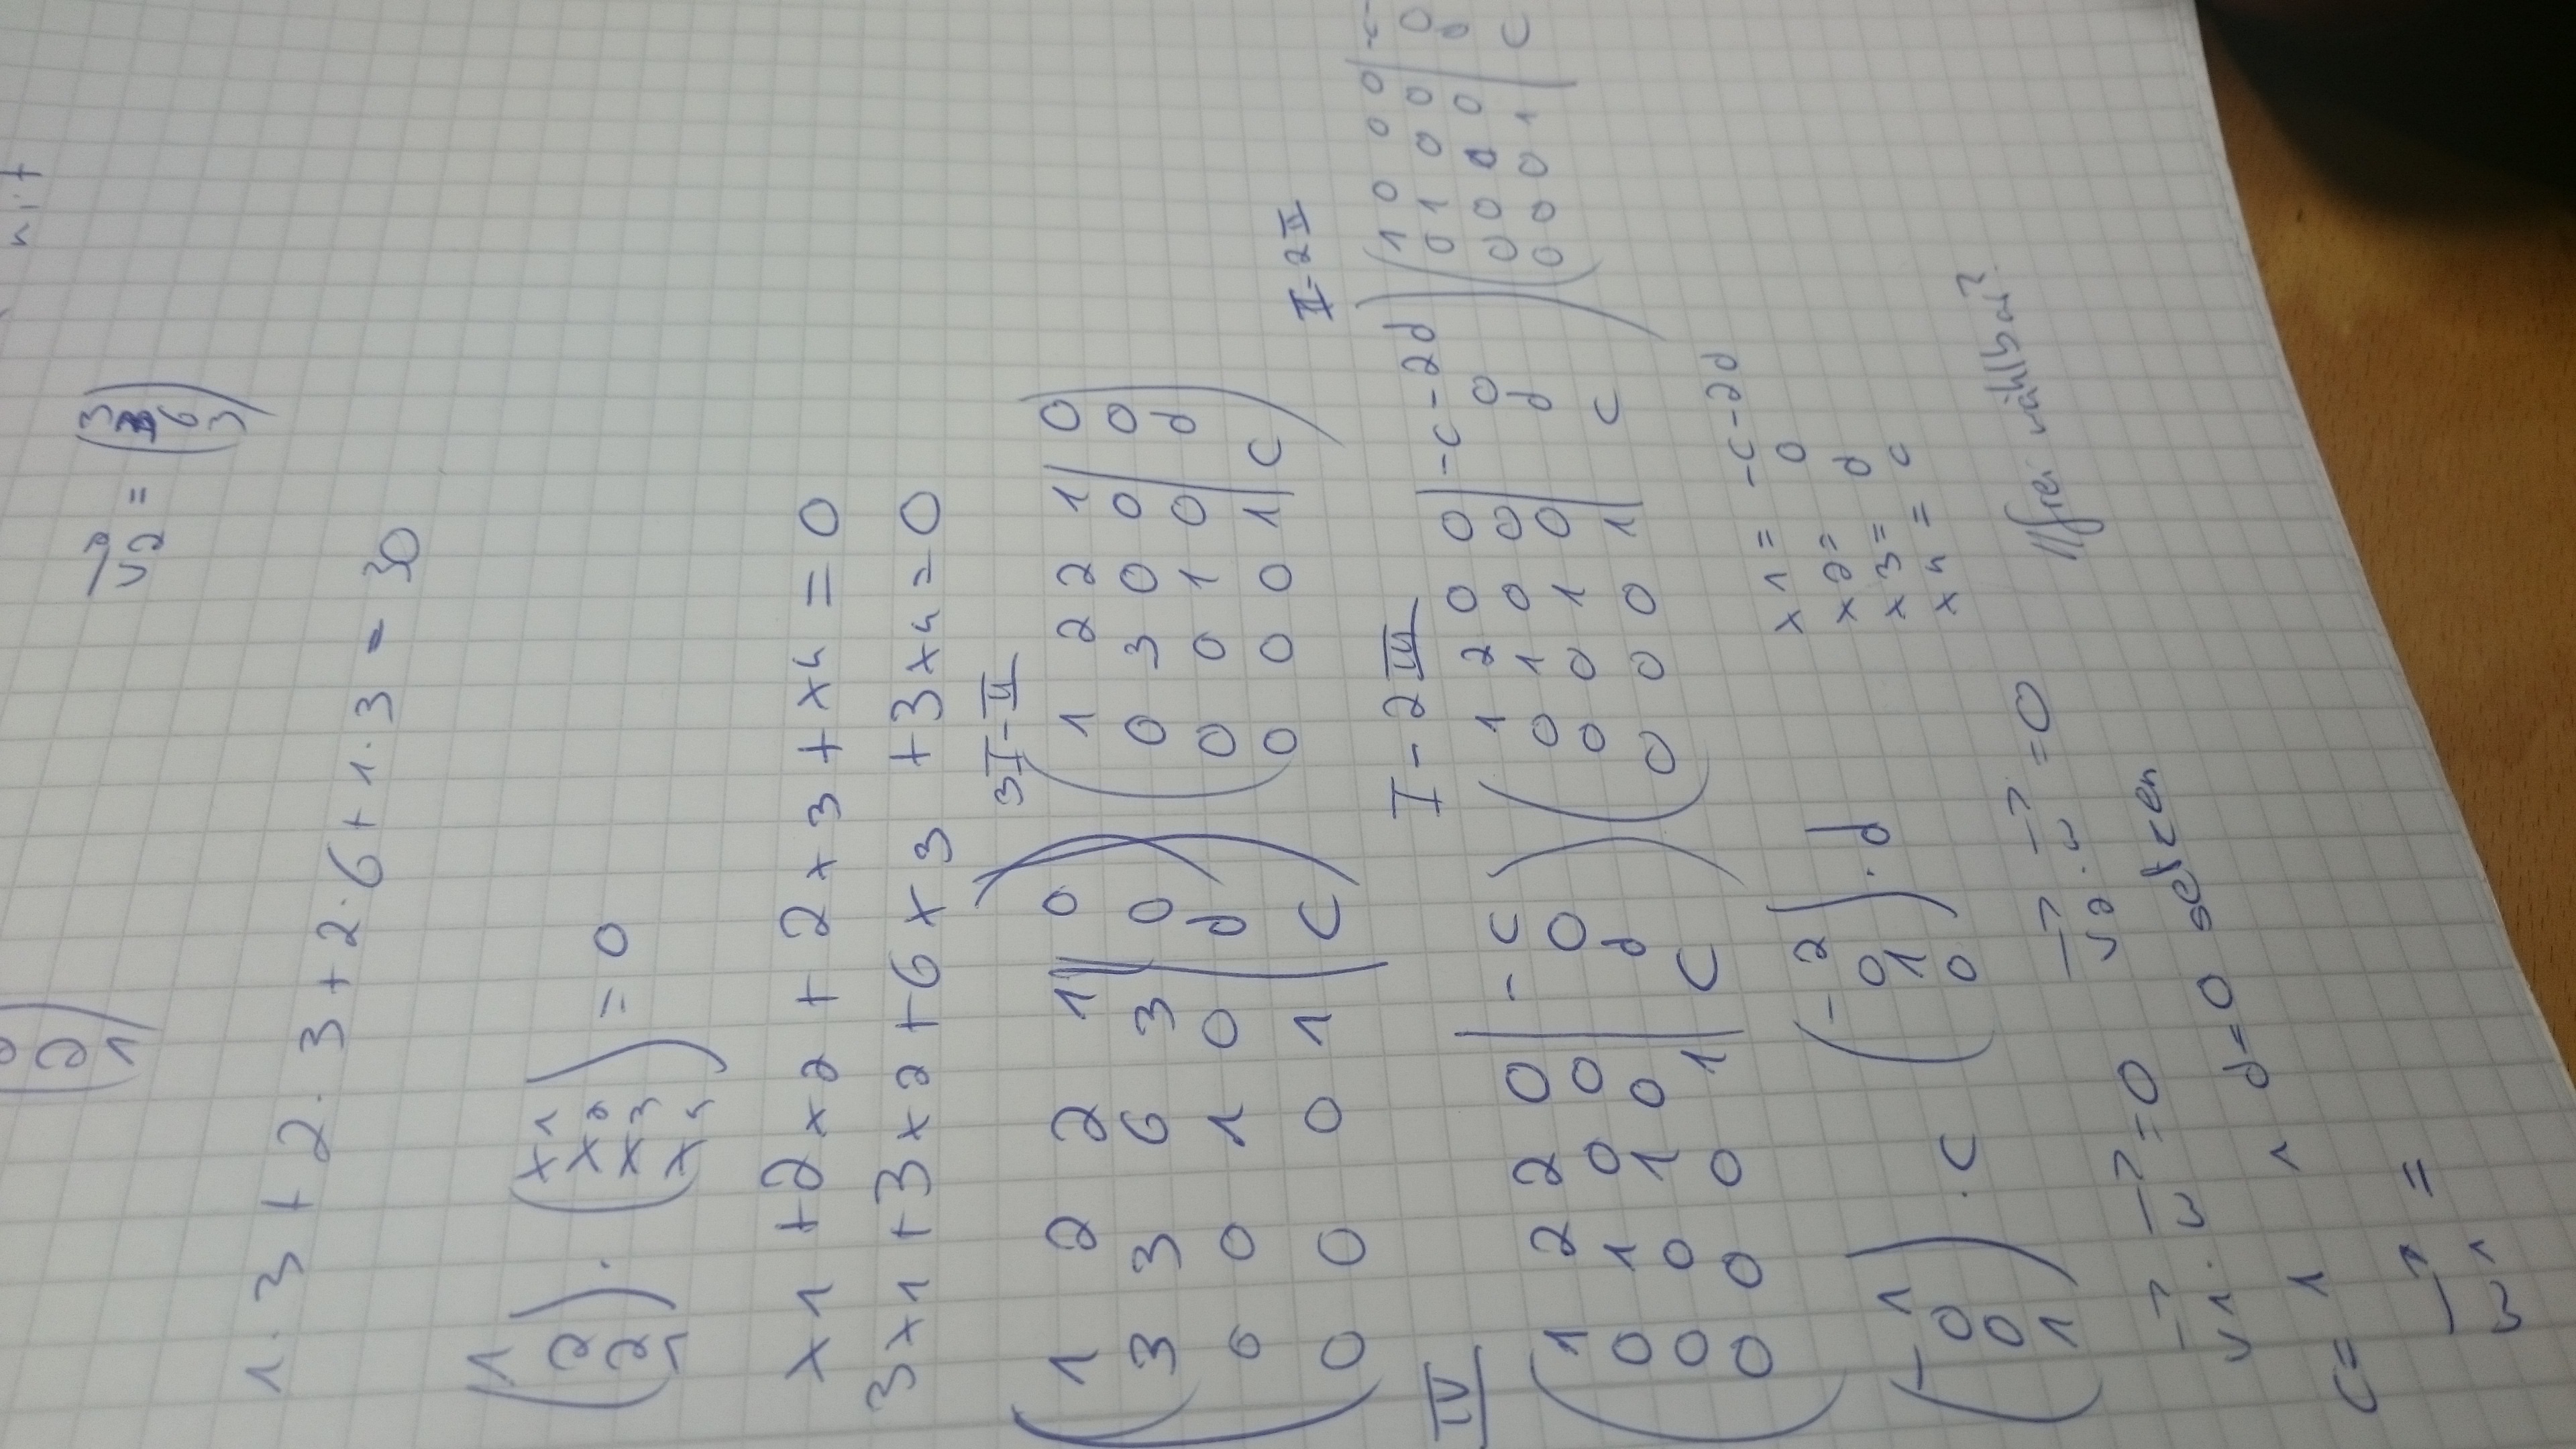 v2 = (3 3 6 3)
2
1)
1·3 + 2·3 + 2·6 + 1·3 = 30
(1 2 2 1) · (x1 x2 x3 x4) = 0
x1 + 2x2 + 2x3 + x4 = 0
3x1 + 3x2 + 6x3 + 3x4 = 0
3I - II
1 2 2 1 | 0
3 3 6 3 | 0
0 0 1 0 | d
0 0 0 1 | c
1 2 2 1 | 0
0 3 0 0 | 0
0 0 1 0 | d
0 0 0 1 | c
IV
1 2 2 0 | -c
0 1 0 0 | 0
0 0 1 0 | d
0 0 0 1 | c
I - 2III
1 2 0 0 | -c-2d
0 1 0 0 | 0
0 0 1 0 | d
0 0 0 1 | c
II-2II
1 0 0 0 | -c
0 1 0 0 | 0
0 0 1 0 | d
0 0 0 1 | c
x1 = -c-2d
x2 = 0
x3 = d
x4 = c
(-1 0 0 1) · c
(-2 0 1 0) · d
frei wählbar?
v1 · w = 0
v2 · w = 0
c = 1 ∧ d = 0 setzen
w1 =